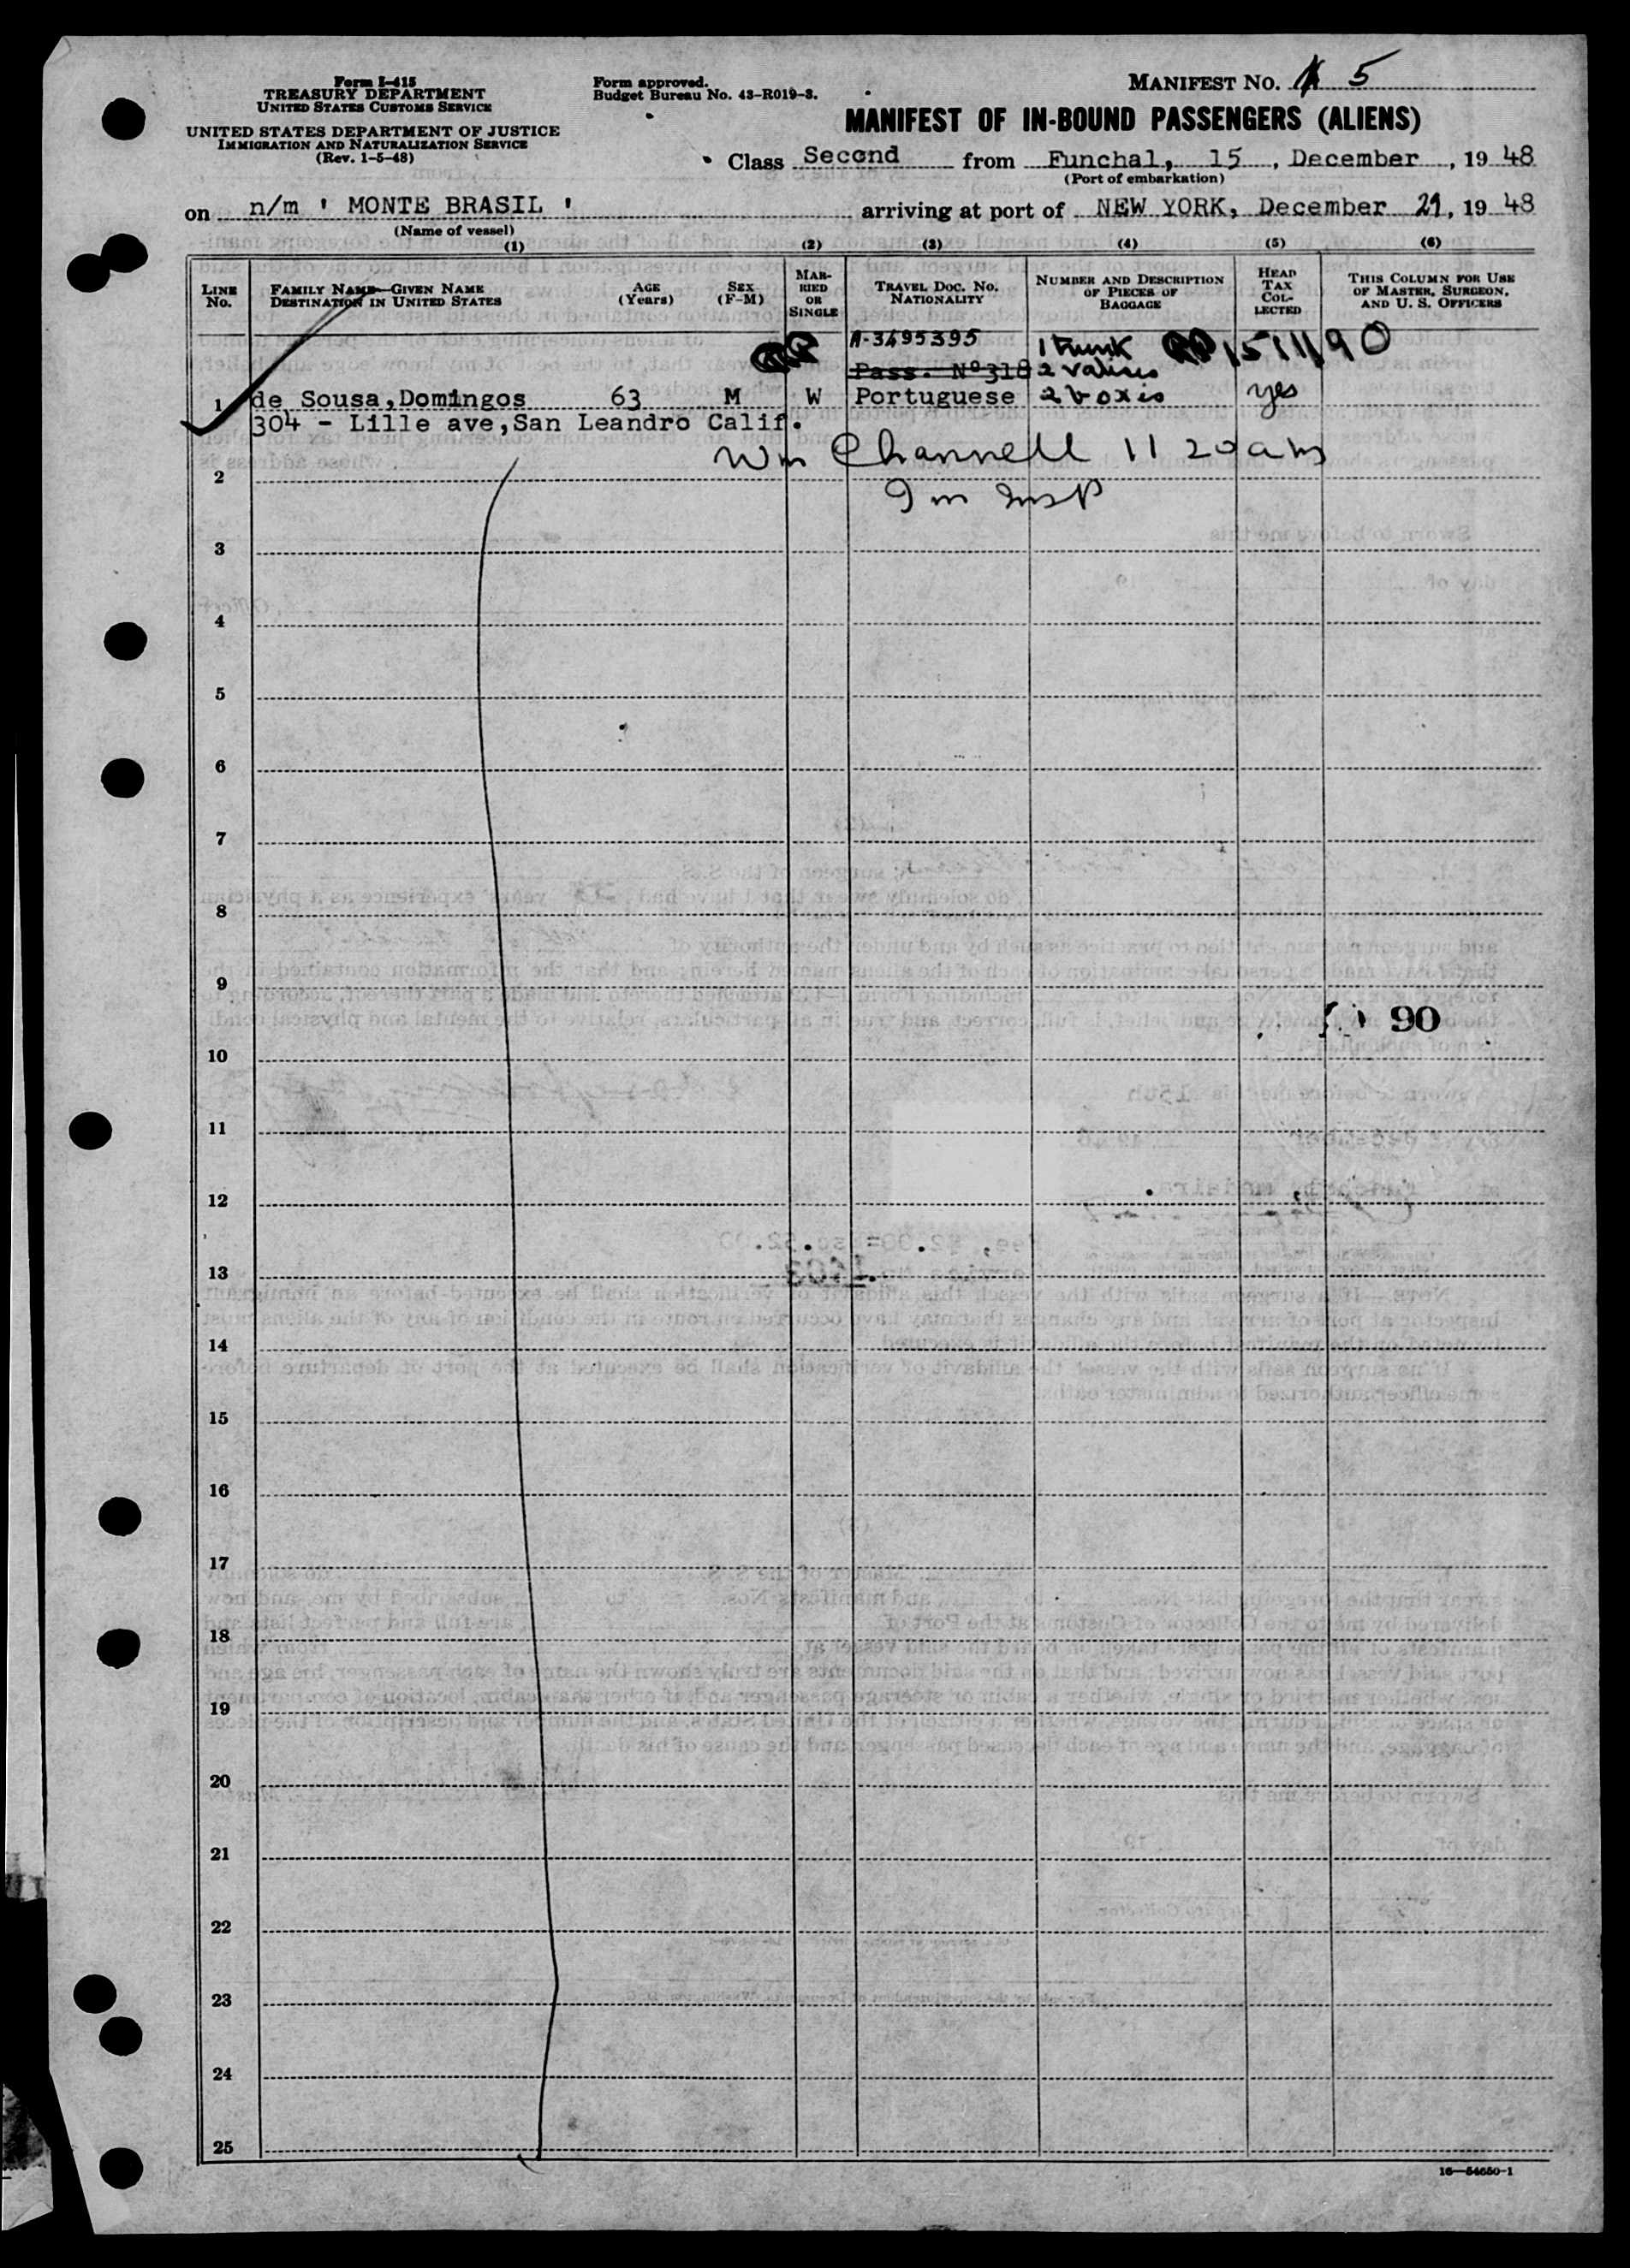 Form I-415
TREASURY DEPARTMENT
UNITED STATES CUSTOMS SERVICE
UNITED STATES DEPARTMENT OF JUSTICE
IMMIGRATION AND NATURALIZATION SERVICE
(Rev. 1-5-48)
Form approved.
Budget Bureau No. 43-R019-3.
MANIFEST NO. 5
MANIFEST OF IN-BOUND PASSENGERS (ALIENS)
Class Second from Funchal, 15, December, 19 48
(Port of embarkation)
on n/m ' MONTE BRASIL ' arriving at port of NEW YORK, December 21, 19 48
(Name of vessel)
(1) (2) (3) (4) (5) (6)
LINE No. FAMILY NAME—GIVEN NAME DESTINATION IN UNITED STATES AGE (Years) SEX (F-M) MARRIED OR SINGLE TRAVEL DOC. NO. NATIONALITY NUMBER AND DESCRIPTION OF PIECES OF BAGGAGE HEAD TAX COLLECTED THIS COLUMN FOR USE OF MASTER, SURGEON, AND U. S. OFFICERS
A-3495395 1 trunk
Pass. Nº 318 2 valises
1 de Sousa,Domingos 63 M W Portuguese 2 boxis yes
304 - Lille ave,San Leandro Calif.
Wm Channell 11 20 am
2 Im Insp
3
4
5
6
7
8
9
90
10
11
12
13
14
15
16
17
18
19
20
21
22
23
24
25
16—54650-1